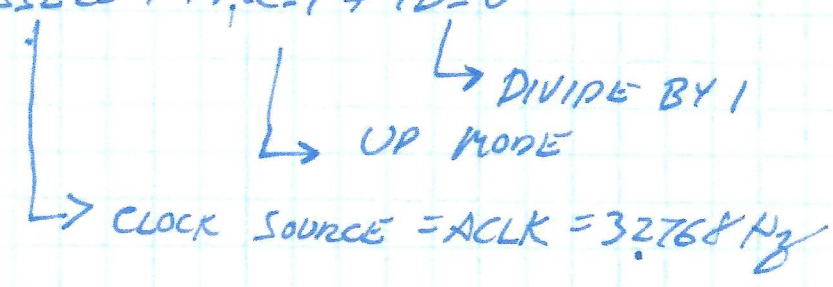 DIVIDE BY 1
UP MODE
CLOCK SOURCE = ACLK = 32768 Hz